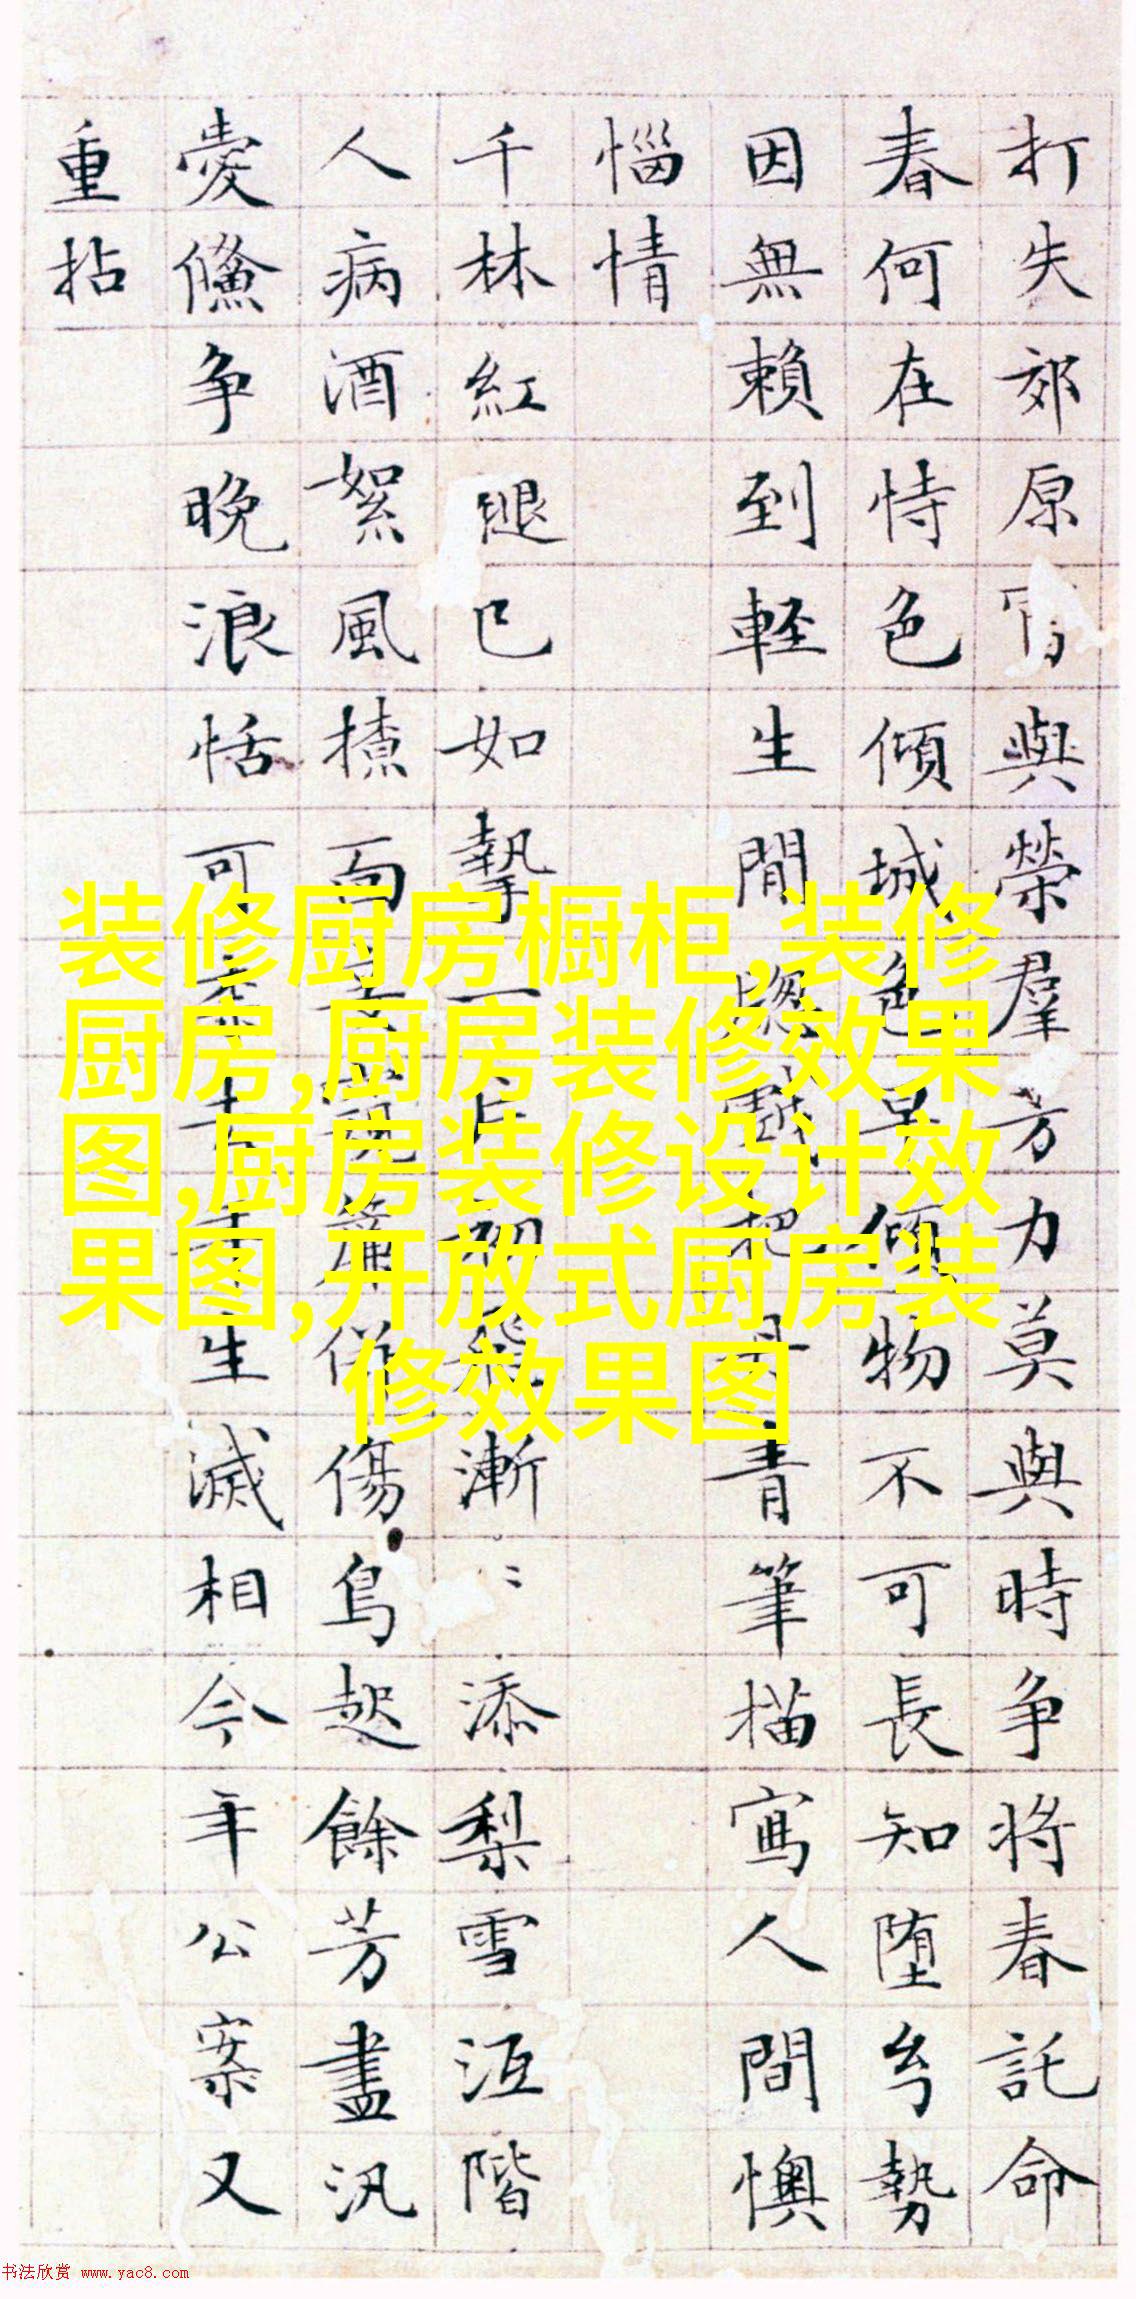 打失郊原與榮羣力莫與時争将春託命
春何在恃色傾城色傾物不可長知堕勢
因無賴到軽生閒把丹青筆描寫人間懊
惱情
千林紅已如一片初漸〻添梨雪沍階
人病酒絮風揸面簾傷鳥起餘芳盡汎
愛争晚浪恬可生滅相今年公案又
重拈
装修厨房橱柜,装修
厨房,厨房装修效果
图,厨房装修设计效
果图,开放式厨房装
修效果图
书法欣赏 www.yac8.com